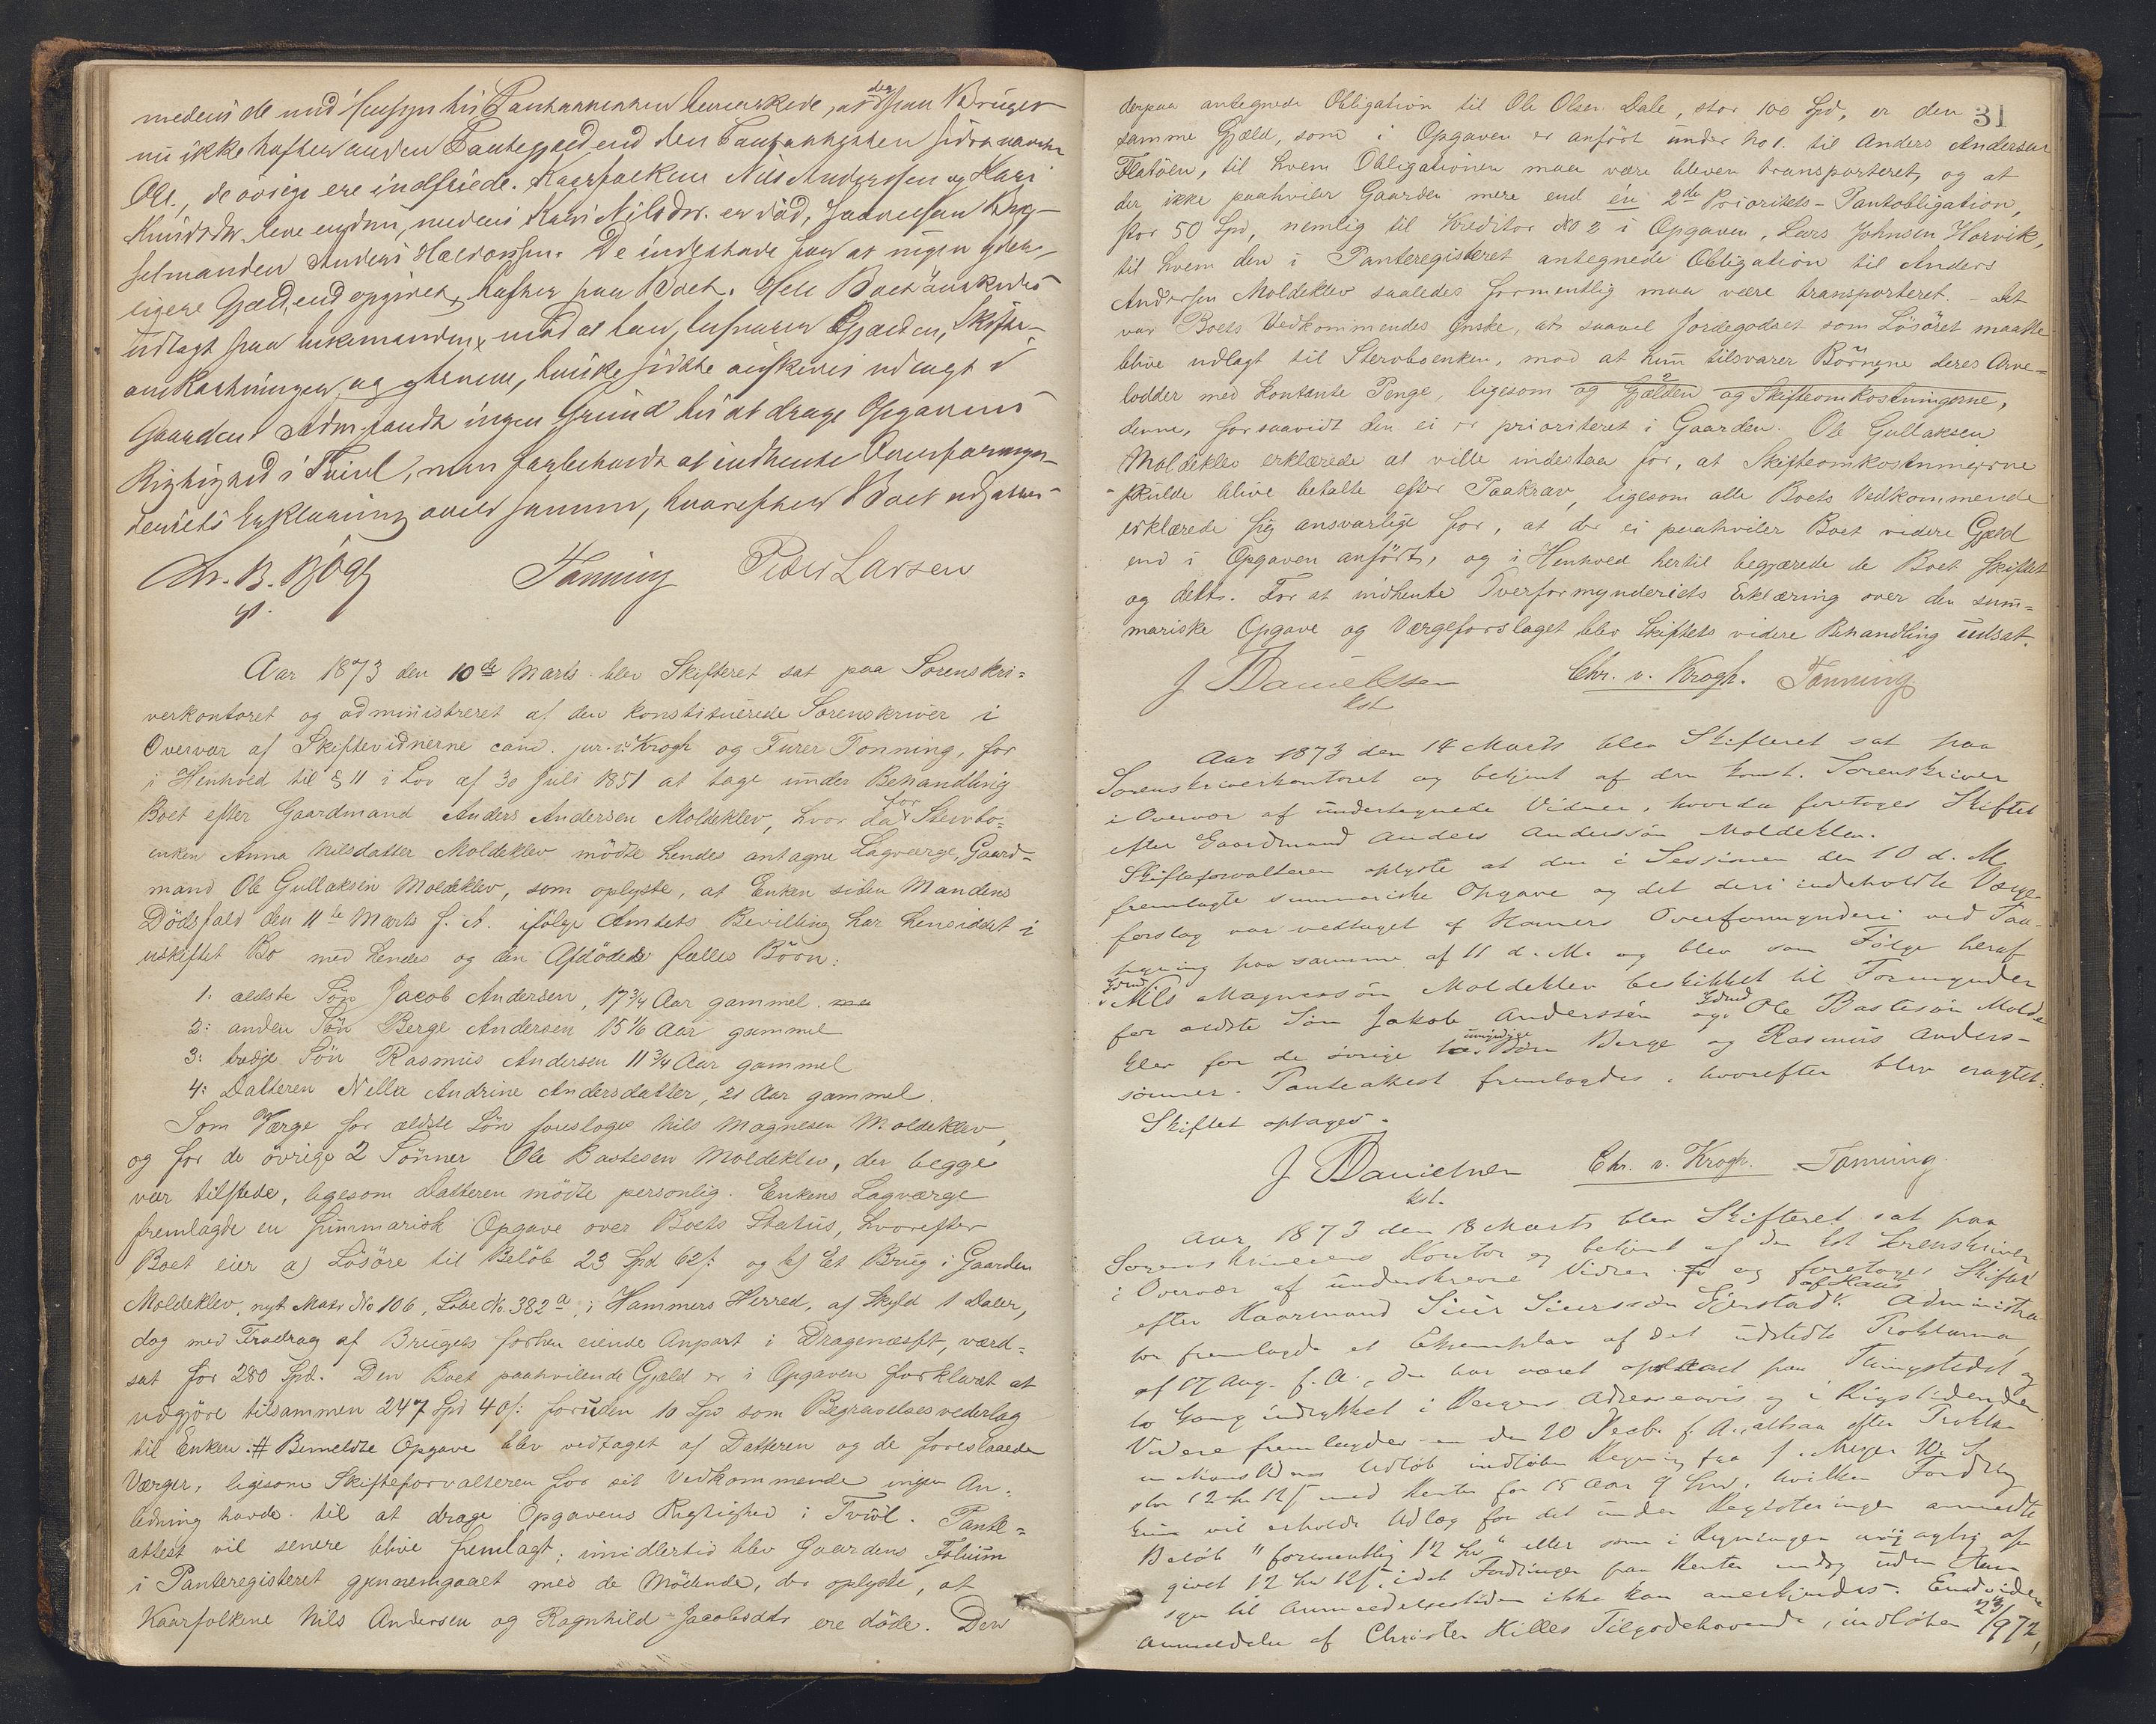 medens de med Hensyn til Panteattesten bemærkede, at der paa Bruget
nu ikke hefter anden Pantegjæld end den Panteattesten sidst nævnte
Obl., de övrige ere indfriede. Kaarfolkene Nils Anderssen og Kari
Knudsdtr. leve endnu, medens Kari Nilsdtr. er död,
selvmanden Anders De indestode for at ingen yder-
ligere Gjæld, end opgivet, hefter paa Boet. Hele Boet önskedes
udlagt paa Enkemanden, mod at han besvarer Gjælden, Skifte-
omkostningerne og Arvene, hvilke sidste önskedes udlagt i
Gaarden. Adm. fandt ingen Grund til at drage Opgavens
Rigtighed i Tvivl, men forbeholdt at indhente Overformyn-
deriets Erklæring over samme, hvorefter Boet udsattes
Chr. B. Bögh Tonning Peder Larsen
Aar 1873 den 10de Marts blev Skifteret sat paa Sorenskri=
verkontoret og administreret af den konstituerede Sorenskriver i
Overvær af Skiftevidnerne cand. jur. v. Krogh og Furer Tonning, for
i Henhold til § 11 i Lov af 30 Juli 1851 at tage under Behandling
Boet efter Gaardmand Anders Andersen Moldeklev, hvor da for Stervbo=
enken Anna Nilsdatter Moldeklev mödte hendes antagne Lagværge, Gaard=
mand Ole Gullaksen Moldeklev, som oplyste, at Enken siden Mandens
Dödsfald den 11te Marts f. A. ifölge Amtets Bevilling har hensiddet i
uskiftet Bo med hendes og den Afdödes fælles Börn:
1. ældste Sön Jacob Andersen, 17 3/4 Aar gammel.
2: anden Sön Berge Andersen 15 1/6 Aar gammel
3: tredje Sön Rasmus Andersen 11 3/4 Aar gammel
4: Datteren Nilla Andrine Andersdatter, 21 Aar gammel.
Som Værge for ældste Sön foresloges Nils Magnesen Moldeklev,
og for de övrige 2 Sönner Ole Bastesen Moldeklev, der begge
var tilstede, ligesom Datteren mödte personlig. Enkens Lagværge
fremlagde en summarisk Opgave over Boets Status, hvorefter
Boet eier a) Lösöre til Belöb 23 Spd 62 s: og b) Et Brug i Gaarden
Moldeklev, nyt Matr No 106, Löbe No. 382 a, i Hammers Herred, af Skyld 1 Daler,
dog med Fradrag af Brugets forhen eiende Anpart i Dragenæsset, værd=
sat for 280 Spd. Den Boet paahvilende Gjæld er i Opgaven forklaret at
udgjöre tilsammen 247 Spd 40 s: foruden 10 Spd som Begravelsesvederlag
til Enken. # Bemeldte Opgave blev vedtaget af Datteren og de foreslaaede
Værger, ligesom Skifteforvalteren for sit Vedkommende ingen An=
ledning havde til at drage Opgavens Rigtighed i Tvivl. Pante=
attest vil senere blive fremlagt; imidlertid blev Gaardens Folium
i Panteregisteret gjennemgaaet med de Mödende, der oplyste, at
Kaarfolkene Nils Andersen og Ragnhild Jacobsdtr ere döde. Den
31
derpaa antegnede Obligation til Ole Olsen Dale, stor 100 Spd, er den
samme Gjæld, som i Opgaven er anfört under No 1. til Anders Andersen
Flatöen, til hvem Obligationen maa være bleven transporteret, og at
der ikke paahviler Gaarden mere end én 2den Prioritets-Pantobligation,
stor 50 Spd, nemlig til Kreditor No 2 i Opgaven, Lars Johnsen Horvik,
til hvem den i Panteregisteret antegnede Obligation til Anders
Andersen Moldeklev saaledes formentlig maa være transporteret. - Det
var Boets Vedkommendes Ønske, at saavel Jordegodset som Lösöret maatte
blive udlagt til Stervboenken, mod at hun tilsvarer Börnene deres Arve=
lodder med kontante Penge, ligesom og Gjælden og Skifteomkostningerne,
denne, forsaavidt den ei er prioriteret i Gaarden. Ole Gullaksen
Moldeklev erklærede at ville indestaa for, at Skifteomkostningerne
skulde blive betalte efter Paakrav, ligesom alle Boets Vedkommende
erklærede sig ansvarlige for, at der ei paahviler Boet videre Gjæld
end i Opgaven anfört, og i Henhold hertil begjærede de Boet skiftet
og delt. For at indhente Overformynderiets Erklæring over den sum=
mariske Opgave og Værgeforslaget blev Skiftets videre Behandling udsat.
J Danielssen Chr. v. Krogh. Tonning
kst
Aar 1873 den 18 Marts blev Skifteret sat paa
Sorenskriverkontoret og betjent af den konst. Sorenskriver
i Overvær af undertegnede Vidner, hvorda foretoges Skiftet
efter Gaardmand Anders Anderssön Moldeklev.
Skifteforvalteren oplyste at den i Sessionen den 10 d. M.
fremlagte summariske Opgave og det deri indeholdte Værge-
forslag var vedtaget af Hamers Overformynderi ved Paa-
tegning paa samme af 11 d. M. og blev som Fölge heraf
Nils Magnessön Moldeklev beskikket til Formynder
for ældste Sön Jakob Anderssön og Ole Bastesön Molde
klev for de övrige umyndige Börn Berge og Rasmus Anders-
sönner. Panteattest fremlagdes, hvorefter blev eragtet:
Skiftet optages.
J Danielssen Chr. v. Krogh. Tonning.
kst.
Aar 1873 den 18 Marts blev Skifteret sat paa
Sorenskriverens Kontor og betjent af den kst Sorenskriver
i Overvær af underskrevne Vidner og foretoges Skiftet
efter Kaarmand Siur Siurssön Gjerstad af Haus. Administra
tor fremlagde et Exemplar af det udstedte Proklama
af 17 Aug. f. A., der har været opslaaet paa Thingstedet og
to Gang indrykket i Bergens Adresseavis og i Rigstidende
Videre fremlagdes en den 20 Decb. f. A., altsaa efter Prokla
ma Udlöb indlöben Regning fra
stor 12 Spd 12 s med Renter for 15 Aar 9 Spd, hvilken Fordring
kun vil erholde Udlæg for det under Registeringen anmeldte
Belöb "formentlig 12 Spd" eller som i Regningen nöiagtig op
givet 12 Spd 12 s, idet Fordringen paa Renter
til Anmeldelsestiden ikke kan anerkjendes. Endvidere
Anmeldelse af Christen Hilles Tilgodehavende, indlöben 23/9 72,